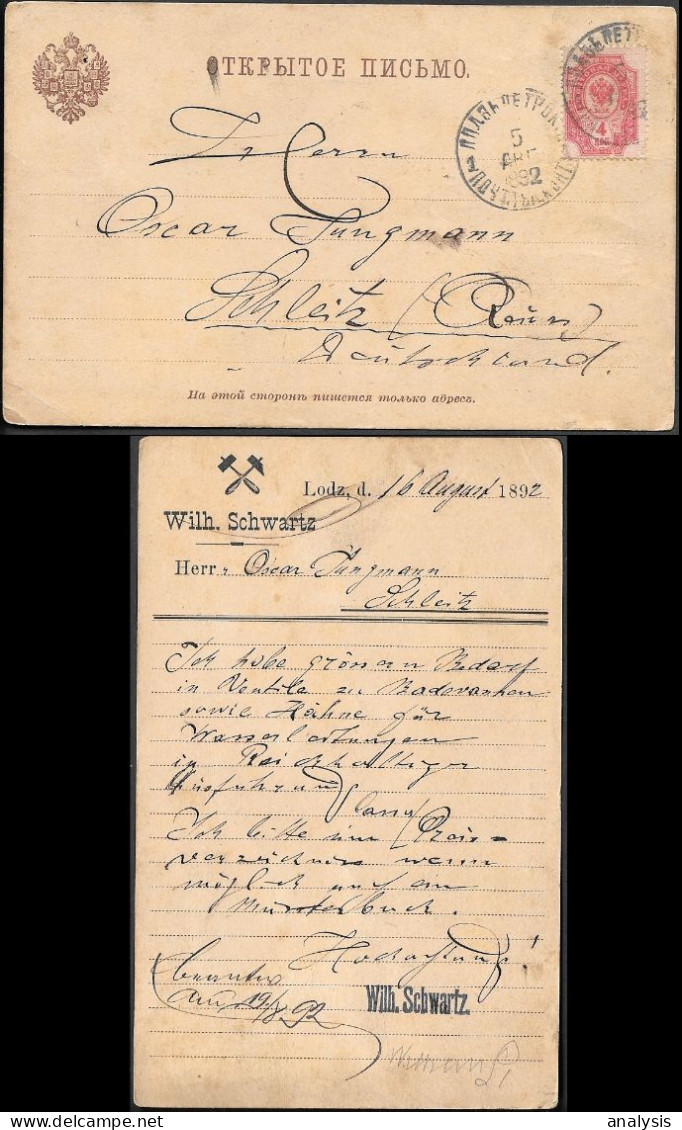 ОТКРЫТОЕ ПИСЬМО.
Herrn
Oscar Jungmann
Schleitz (Reuss)
Deutschland.
4
5
АВГ
1892
На этой сторонѣ пишется только адресъ.
Lodz, d. 16 August 1892
Wilh. Schwartz
Herrn Oscar Jungmann
Schleitz
Ich habe grössern Bedarf
in Ventile zu Badewannen
sowie Hähne für
Wasserleitungen
in Reichhaltiger
Ausführung
Ich bitte um Preis-
verzeichniss wenn
möglich auch ein
Musterbuch.
Hochachtung
beantw
am 19/8 92
Wilh. Schwartz.
analysis